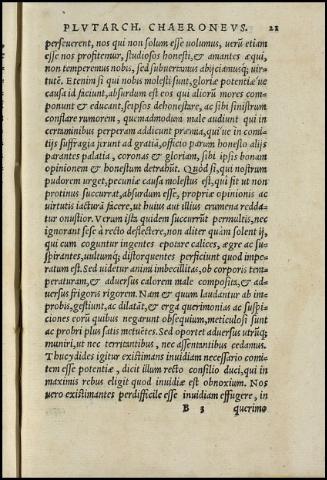 PLVTARCH. CHAERONEVS. 21
perseuerent, nos qui non solum esse volumus, uerū etiam
esse nos profitemur, studiosos honesti, & amantes æqui,
non temperemus nobis, sed subuertamus abijciamusq; uir-
tutē. Etenim si qui nobis molesti sunt, gloriæ potentiæ ue
causa id faciunt, absurdum est eos qui aliorū mores com-
ponunt & educant, seipsos dehonestare, ac sibi sinistrum
conflare rumorem, quemadmodum male audiunt qui in
certaminibus perperam addicunt præmia, qui'ue in comi-
tijs suffragia ferunt ad gratiā, officio parum honesto alijs
parantes palatia, coronas & gloriam, sibi ipsis bonam
opinionem & honestum detrahūt. Quòd si, qui nostrum
pudorem urget, pecuniæ causa molestus est, qui fit ut non
protinus succurrat, absurdum esse, propriæ opinionis ac
uirtutis iacturā facere, ut huius aut illius crumena redda-
tur onustior. Verum ista quidem succurrūt permultis, nec
ignorant sese à recto deflectere, non aliter quàm solent ij,
qui cum coguntur ingentes epotare calices, ægre ac su-
spirantes, uultumq; distorquentes perficiunt quod impe-
ratum est. Sed uidetur animi imbecillitas, ob corporis tem-
peraturam, & aduersus calorem male composita, & ad-
uersus frigoris rigorem. Nam & quum laudantur ab im-
probis, gestiunt, ac dilatāt, & erga querimonias ac suspi-
ciones eorū quibus negarunt obsequium, meticulosi sunt
ac probri plus satis metuētes. Sed oportet aduersus utrūq;
muniri, ut nec territantibus, nec assentantibus cedamus.
Thucydides igitur existimans inuidiam necessario comi-
tem esse potentiæ, dicit illum recto consilio duci, qui in
maximis rebus eligit quod inuidiæ est obnoxium. Nos
uero existimantes perdifficile esse inuidiam effugere, in
B 3 querimo